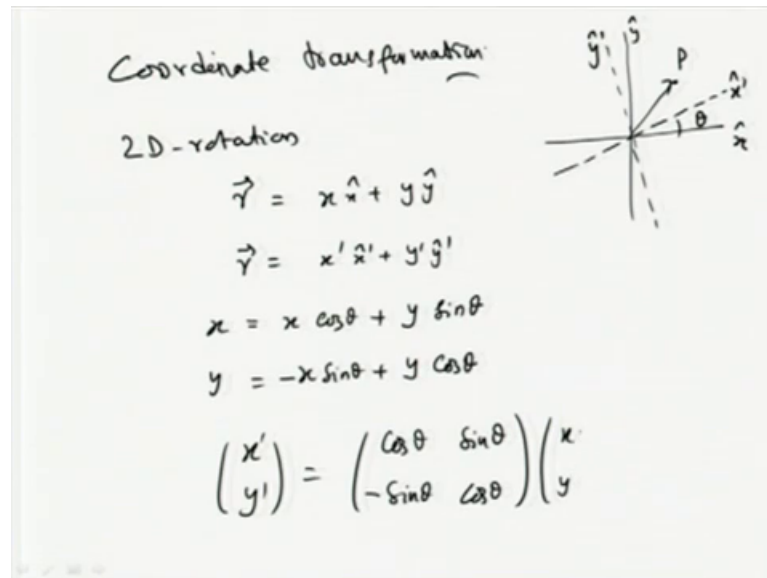 Coordinate transformation
2D-rotation
ŷ' ŷ
P
r
x̂'
θ
x̂
r⃗ = x x̂ + y ŷ
r⃗ = x' x̂' + y' ŷ'
x = x cosθ + y sinθ
y = -x sinθ + y cosθ
(x' y') = (cosθ sinθ -sinθ cosθ) (x y